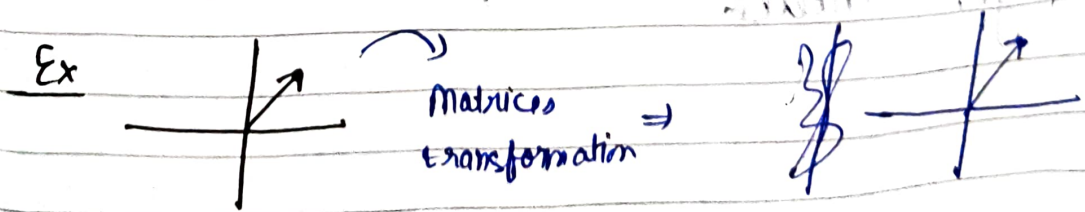 Ex
Matrices
transformation ⇒